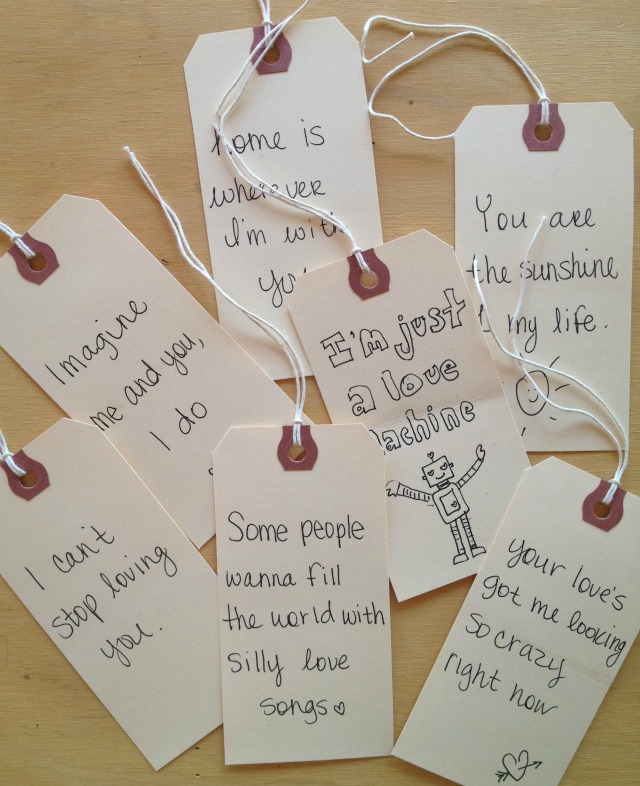 Home is
wherever
I'm with
you
You are
the sunshine
my life.
Imagine
me and you,
I do
I'm just
a love
machine
I can't
stop loving
you.
Some people
wanna fill
the world with
silly love
songs
your love's
got me looking
so crazy
right now